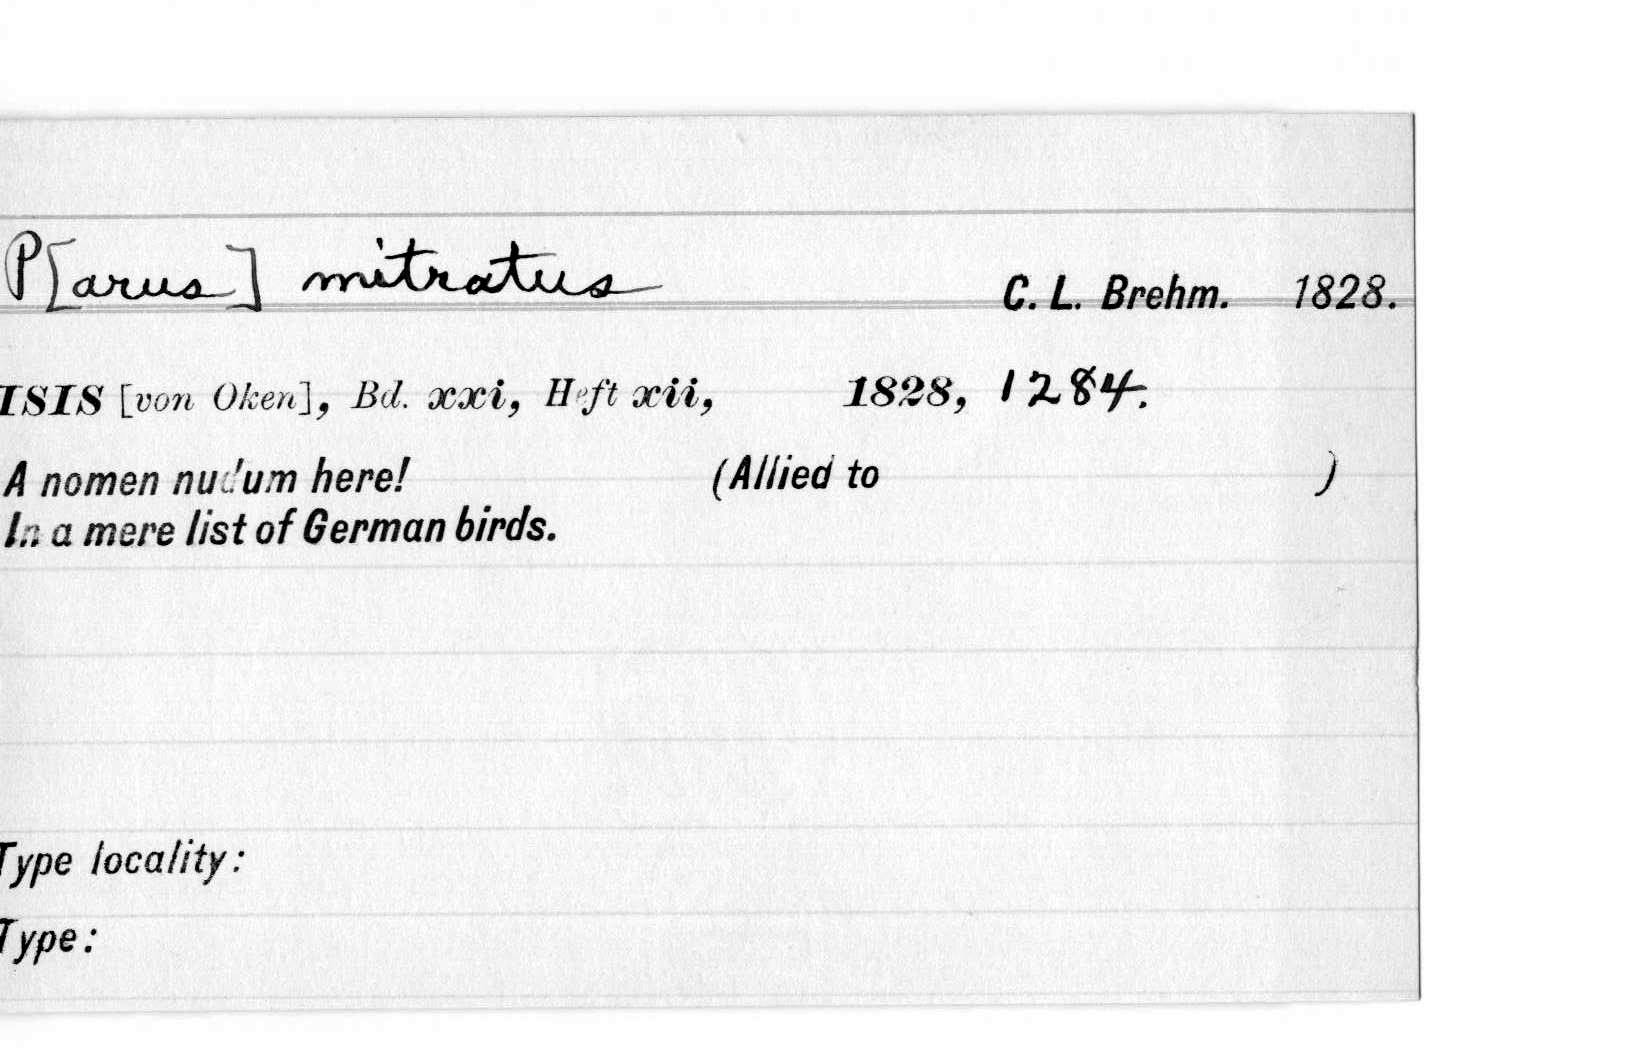 P[arus] mitratus C. L. Brehm. 1828.
ISIS [von Oken], Bd. xxi, Heft xii, 1828, 1284.
A nomen nudum here! (Allied to )
In a mere list of German birds.
Type locality:
Type: